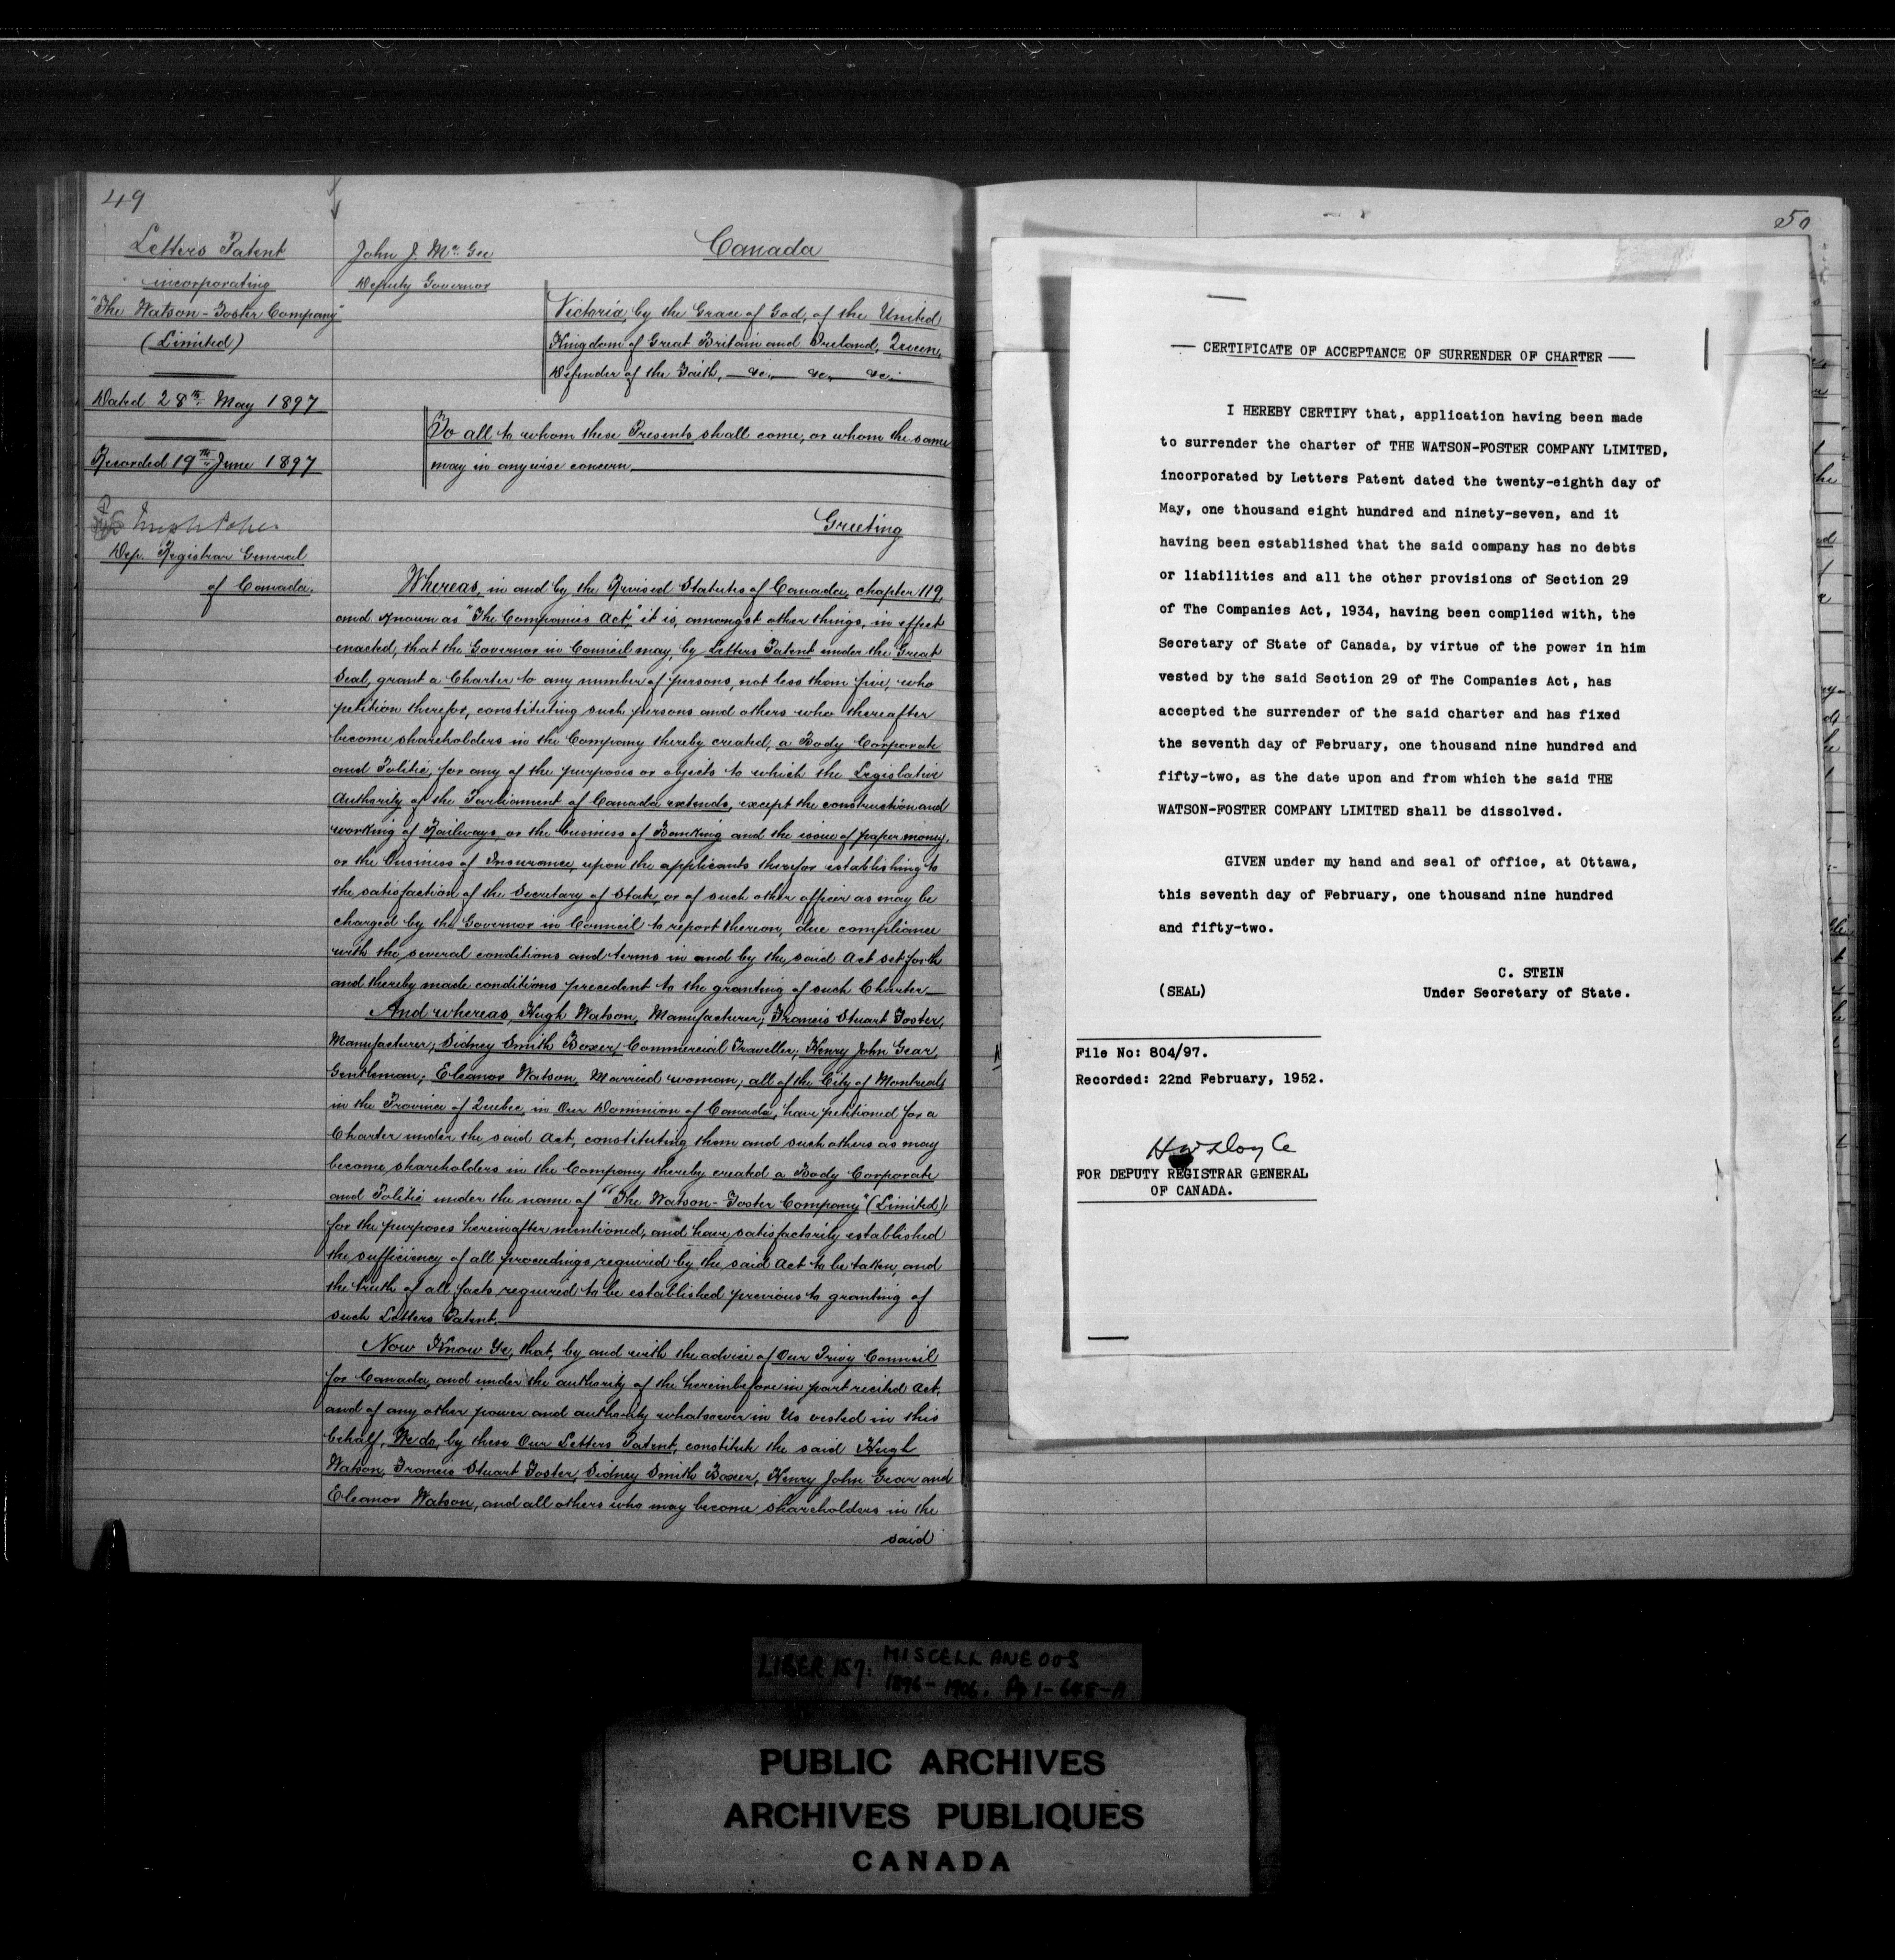 49
Letters Patent
incorporating
"The Watson-Foster Company"
(Limited)
Dated 28th May 1897
Recorded 19th June 1897
Dep. Registrar General
of Canada.
John J. McGee
Deputy Governor
Canada
Victoria, by the Grace of God, of the United
Kingdom of Great Britain and Ireland, Queen,
Defender of the Faith, &c., &c., &c.
To all to whom these Presents shall come, or whom the same
may in anywise concern
Greeting
Whereas, in and by the Revised Statutes of Canada, chapter 119,
and known as "The Companies Act," it is, amongst other things, in effect
enacted, that the Governor in Council may, by Letters Patent under the Great
Seal, grant a Charter to any number of persons, not less than five, who
petition therefor, constituting such persons and others who thereafter
become shareholders in the Company thereby created, a Body Corporate
and Politic, for any of the purposes or objects to which the Legislative
Authority of the Parliament of Canada extends, except the construction and
working of Railways, or the business of Banking and the issue of paper money,
or the Business of Insurance, upon the applicants therefor establishing to
the satisfaction of the Secretary of State, or of such other officer as may be
charged by the Governor in Council to report thereon, due compliance
with the several conditions and terms in and by the said Act set forth
and thereby made conditions precedent to the granting of such Charter
And whereas, Hugh Watson, Manufacturer; Francis Stuart Foster,
Manufacturer; Sidney Smith Boxer, Commercial Traveller; Henry John Gear,
Gentleman; Eleanor Watson, Married woman; all of the City of Montreal,
in the Province of Quebec, in Our Dominion of Canada, have petitioned for a
Charter under the said Act, constituting them and such others as may
become shareholders in the Company thereby created a Body Corporate
and Politic under the name of "The Watson-Foster Company" (Limited),
for the purposes hereinafter mentioned, and have satisfactorily established
the sufficiency of all proceedings required by the said Act to be taken, and
the truth of all facts required to be established previous to granting of
such Letters Patent.
Now Know Ye, that, by and with the advice of Our Privy Council
for Canada, and under the authority of the hereinbefore in part recited Act,
and of any other power and authority whatsoever in Us vested in this
behalf, We do, by these Our Letters Patent, constitute the said Hugh
Watson, Francis Stuart Foster, Sidney Smith Boxer, Henry John Gear and
Eleanor Watson, and all others who may become shareholders in the
said
50
CERTIFICATE OF ACCEPTANCE OF SURRENDER OF CHARTER
I HEREBY CERTIFY that, application having been made
to surrender the charter of THE WATSON-FOSTER COMPANY LIMITED,
incorporated by Letters Patent dated the twenty-eighth day of
May, one thousand eight hundred and ninety-seven, and it
having been established that the said company has no debts
or liabilities and all the other provisions of Section 29
of The Companies Act, 1934, having been complied with, the
Secretary of State of Canada, by virtue of the power in him
vested by the said Section 29 of The Companies Act, has
accepted the surrender of the said charter and has fixed
the seventh day of February, one thousand nine hundred and
fifty-two, as the date upon and from which the said THE
WATSON-FOSTER COMPANY LIMITED shall be dissolved.
GIVEN under my hand and seal of office, at Ottawa,
this seventh day of February, one thousand nine hundred
and fifty-two.
C. STEIN
(SEAL) Under Secretary of State.
File No: 804/97.
Recorded: 22nd February, 1952.
FOR DEPUTY REGISTRAR GENERAL
OF CANADA.
LIBER 157: MISCELLANEOUS
1896-1906. Pp 1-648-A
PUBLIC ARCHIVES
ARCHIVES PUBLIQUES
CANADA